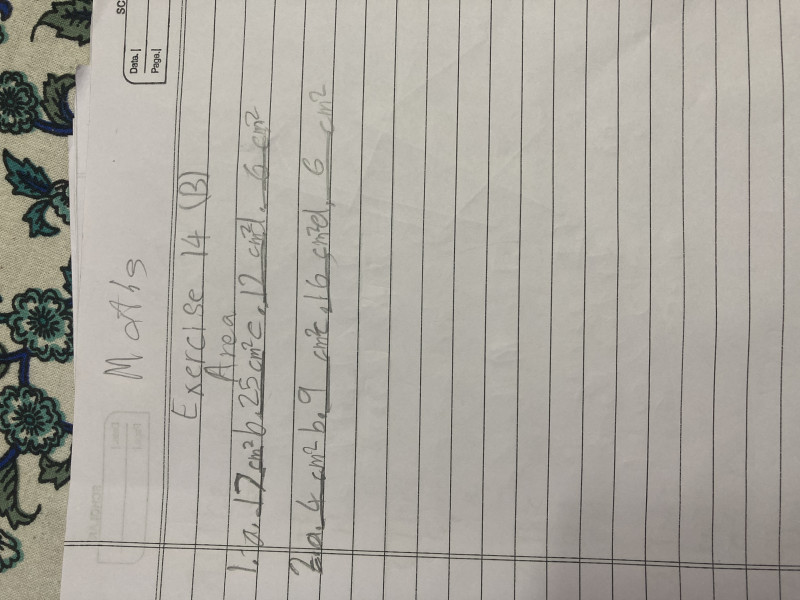 SC
Data.
Page.
Maths
Exercise 14 (B)
Area
1. a. 17cm² b. 25cm² c. 12 cm² d. 6 cm²
2. a. 4 cm² b. 9 cm² c. 16 cm² d. 6 cm²